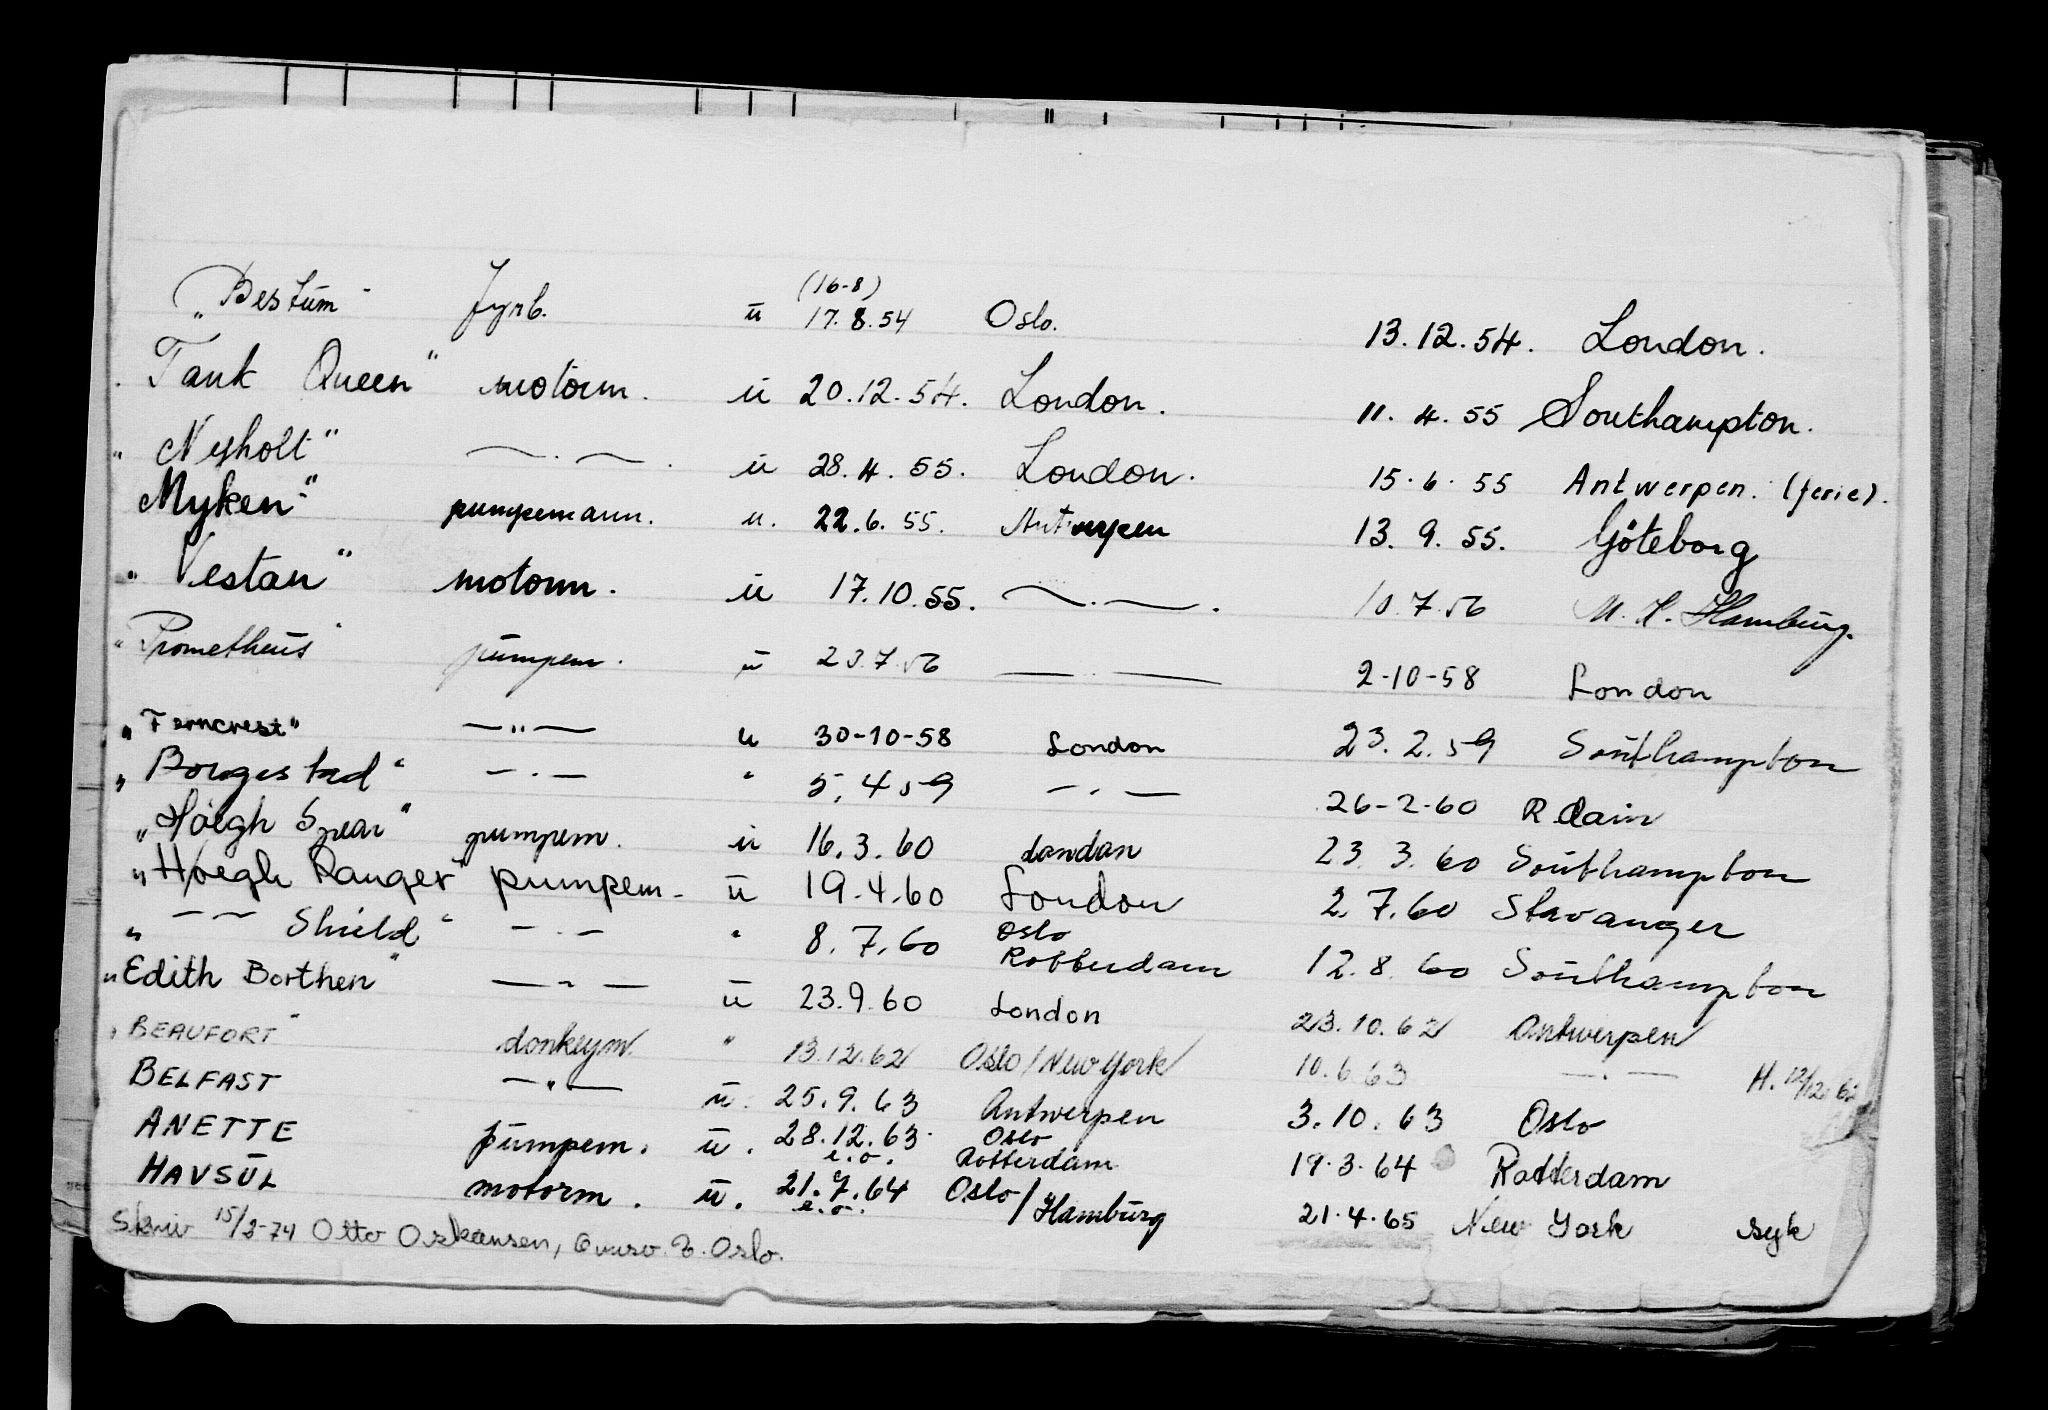 (16-8)
"Bestum" fyrb. u 17.8.54 Oslo. 13.12.54. London.
"Tank Queen" motorm. u 20.12.54. London. 11.4.55 Southampton.
"Nyholt" — . — . u 28.4.55. London. 15.6.55 Antwerpen. (ferie).
Myken" pumpemann. u. 22.6.55. Antwerpen 13.9.55. Göteborg
"Vestan" motorm. u 17.10.55. — . — . 10.7.56 Hamburg.
"Prometheus" pumpem. u 23.7.56 — . — 2-10-58 London
"Ferncrest" — " — u 30-10-58 London 23.2.59 Southampton
"Borgestad" — . — " 5.4.59 — " — 26-2-60 R
"Höegh Spear" pumpem. u 16.3.60 London 23.3.60 Southampton
"Höegh Ranger" pumpem. u 19.4.60 London 2.7.60 Stavanger
" — — Shield" — . — " 8.7.60 Oslo Rotterdam 12.8.60 Southampton
"Edith Borthen" — " — u 23.9.60 London 23.10.62 Antwerpen
"BEAUFORT" donkeym. " 13.12.62 Oslo/New York 10.6.63 — . — H. 12/12.62
BELFAST — " — u. 25.9.63 Antwerpen 3.10.63 Oslo
ANETTE pumpem. u. 28.12.63. e.o. Oslo Rotterdam 19.3.64 Rotterdam
HAVSUL motorm. u. 21.7.64 e.o. Oslo/Hamburg 21.4.65 New York syk
Skriv 15/2-74 Otto Oskansen, Oslo.